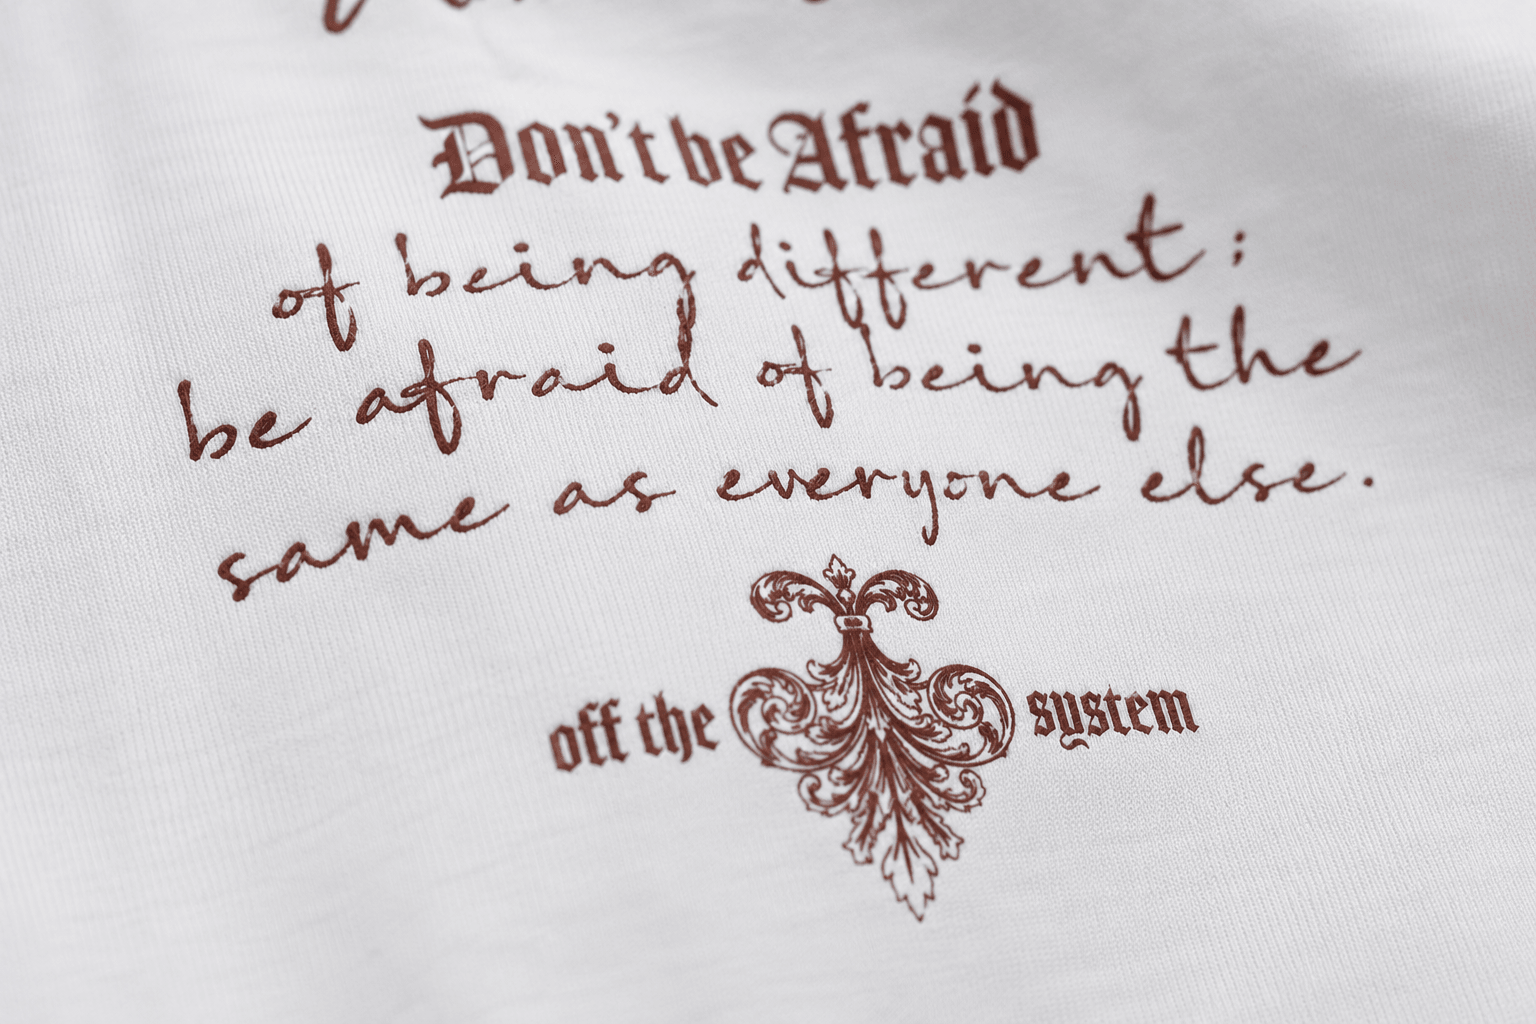 Don't be Afraid
of being different;
be afraid of being the
same as everyone else.
off the system